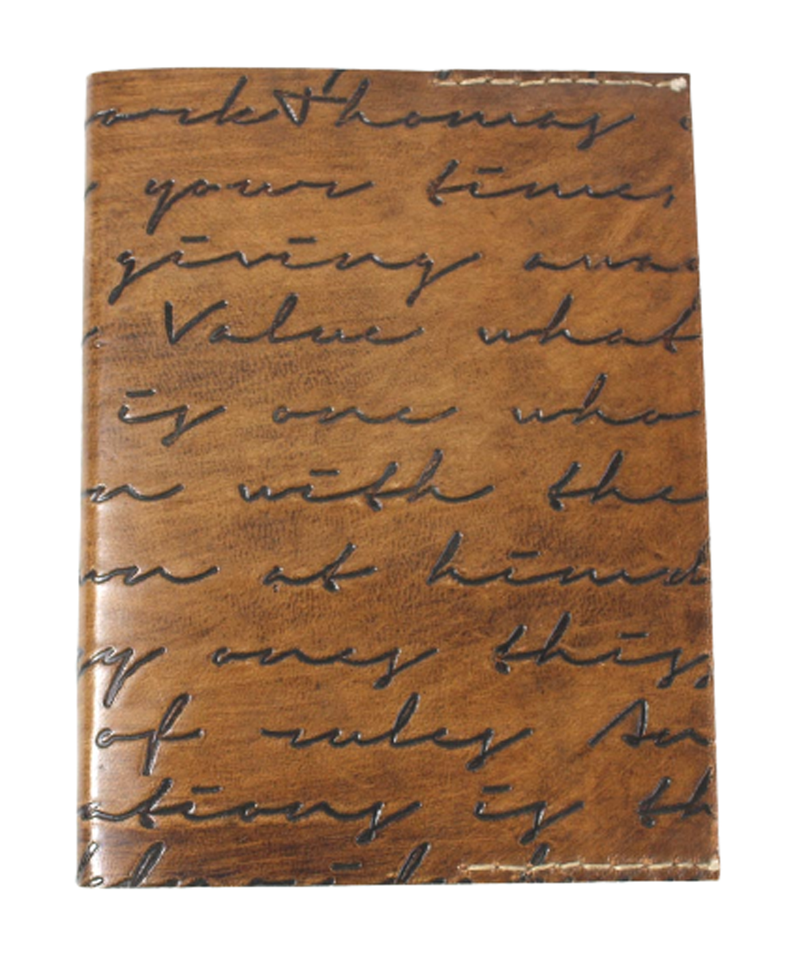 ark Thomas
your times
giving awa
Value what
is one who
n with the
wn at hind
y ones this
of rules An
ations is th